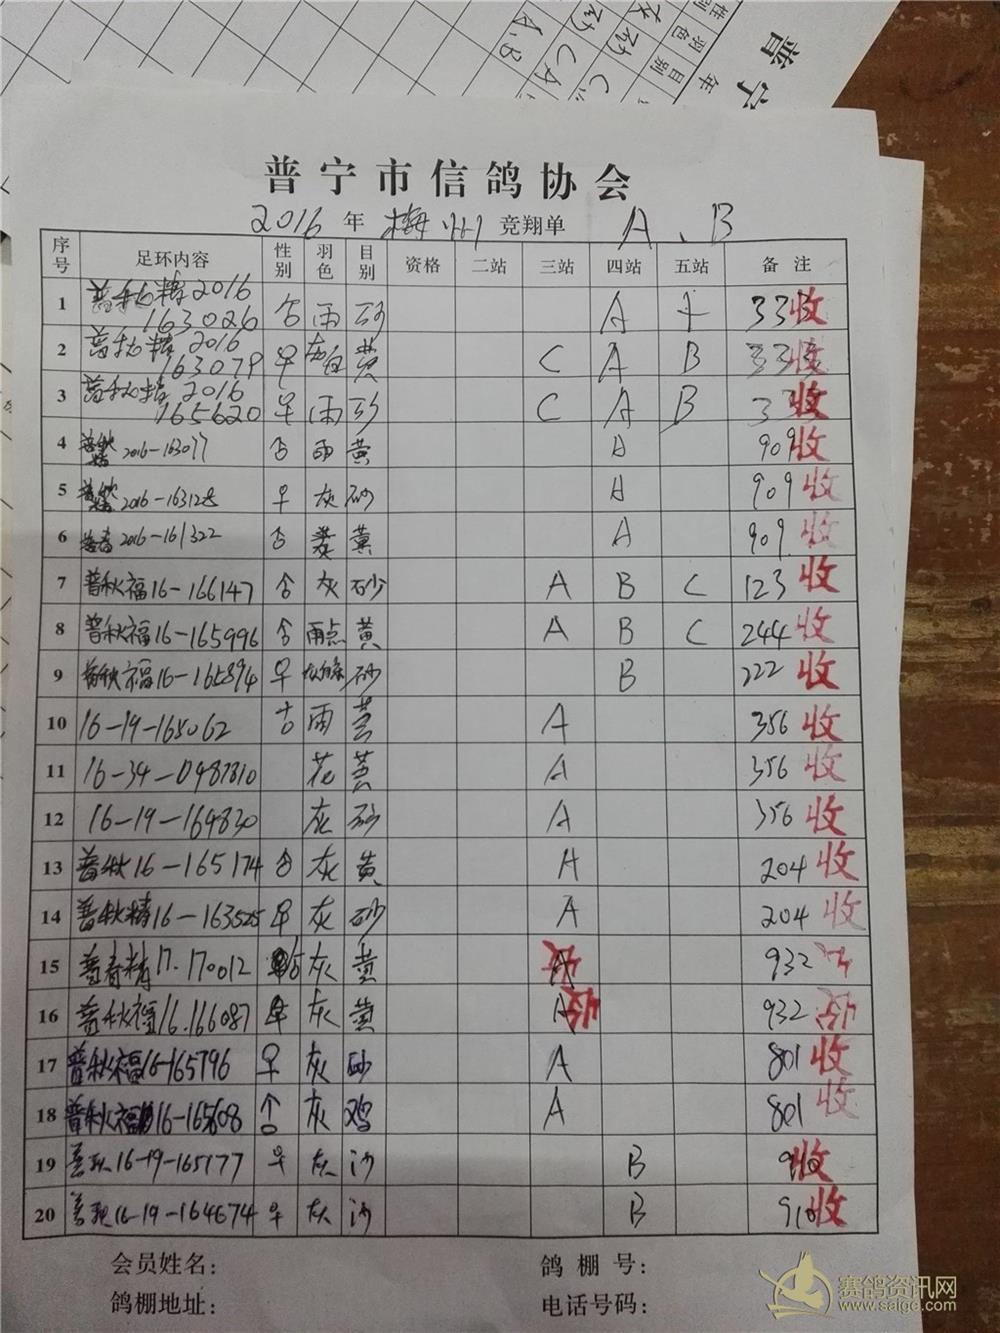 普宁
年
性别 羽色 目别
普宁市信鸽协会
2016 年 梅州 竞翔单 A、B
序号 足环内容 性别 羽色 目别 资格 二站 三站 四站 五站 备注
1 普秋精2016 163026 雨 砂 A 333 收
2 普秋精 2016 163079 灰白 黄 C A B 333 收
3 普秋精 2016 165620 雨 砂 C A B 33 收
4 普秋 2016-1630 雨 黄 A 909 收
5 2016-163128 灰 砂 A 909 收
6 普春 2016-161322 黄 A 909 收
7 普秋福16-166147 灰 砂 A B C 123 收
8 普秋福16-165996 雨点 黄 A B C 244 收
9 普秋福16-165894 砂 B 222 收
10 16-19-165062 雨 黄 A 356 收
11 16-34-0987810 花 黄 A 356 收
12 16-19-164830 灰 砂 A 356 收
13 普秋16-165174 灰 黄 A 204 收
14 普秋精16-163525 灰 砂 A 204 收
15 普春精17.170012 灰 黄 A 932
16 普秋福16.166087 灰 黄 A 收 932 收
17 普秋福16-165796 灰 砂 A 801 收
18 普秋福16-165608 灰 鸡 A 801 收
19 普秋16-19-165177 灰 沙 B 910 收
20 普秋16-19-164674 灰 沙 B 910 收
会员姓名: 鸽棚号:
鸽棚地址: 电话号码:
赛鸽资讯网
www.saige.com